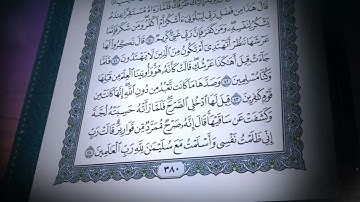 قَالَ هَٰذَا مِن فَضْلِ رَبِّي لِيَبْلُوَنِيٓ ءَأَشْكُرُ أَمْ أَكْفُرُ وَمَن شَكَرَ فَإِنَّمَا
يَشْكُرُ لِنَفْسِهِۦ وَمَن كَفَرَ فَإِنَّ رَبِّي غَنِيٌّ كَرِيمٌ ٤٠ قَالَ نَكِّرُواْ لَهَا
عَرْشَهَا نَنظُرْ أَتَهْتَدِيٓ أَمْ تَكُونُ مِنَ ٱلَّذِينَ لَا يَهْتَدُونَ ٤١ فَلَمَّا
جَآءَتْ قِيلَ أَهَٰكَذَا عَرْشُكِ قَالَتْ كَأَنَّهُۥ هُوَ وَأُوتِينَا ٱلْعِلْمَ مِن قَبْلِهَا
وَكُنَّا مُسْلِمِينَ ٤٢ وَصَدَّهَا مَا كَانَت تَّعْبُدُ مِن دُونِ ٱللَّهِ إِنَّهَا كَانَتْ مِن
قَوْمٍ كَٰفِرِينَ ٤٣ قِيلَ لَهَا ٱدْخُلِي ٱلصَّرْحَ فَلَمَّا رَأَتْهُ حَسِبَتْهُ لُجَّةً
وَكَشَفَتْ عَن سَاقَيْهَا قَالَ إِنَّهُۥ صَرْحٌ مُّمَرَّدٌ مِّن قَوَارِيرَ قَالَتْ رَبِّ
إِنِّي ظَلَمْتُ نَفْسِي وَأَسْلَمْتُ مَعَ سُلَيْمَٰنَ لِلَّهِ رَبِّ ٱلْعَٰلَمِينَ ٤٤
٣٨٠